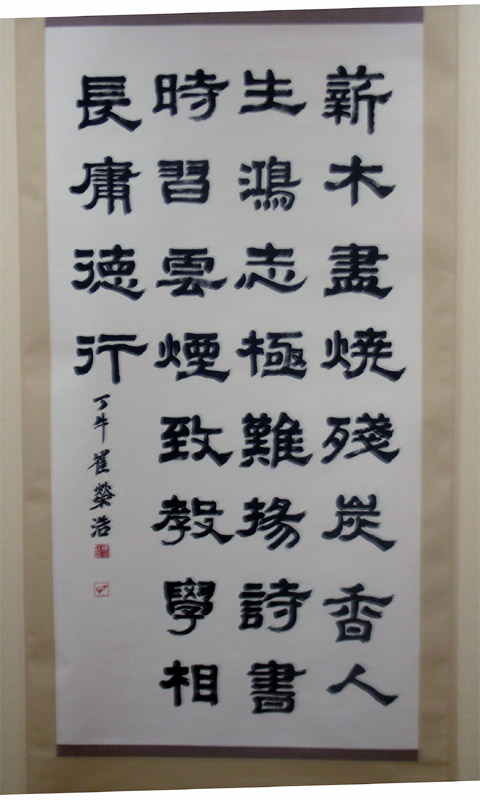 薪木盡燒殘炭香人
生鴻志極難揚詩書
時習雲煙致教學相
長庸德行
丁丑崔榮浩